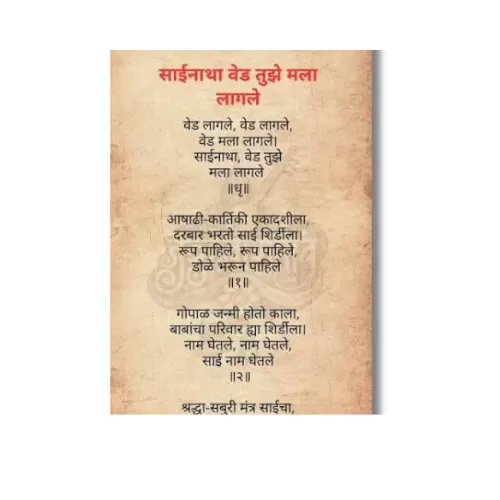 साईनाथा वेड तुझे मला
लागले
वेड लागले, वेड लागले,
वेड मला लागले।
साईनाथा, वेड तुझे
मला लागले
॥धृ॥
आषाढी-कार्तिकी एकादशीला,
दरबार भरतो साई शिर्डीला।
रूप पाहिले, रूप पाहिले,
डोळे भरून पाहिले
॥१॥
गोपाळ जन्मी होतो काला,
बाबांचा परिवार ह्या शिर्डीला।
नाम घेतले, नाम घेतले,
साई नाम घेतले
॥२॥
श्रद्धा-सबुरी मंत्र साईचा,